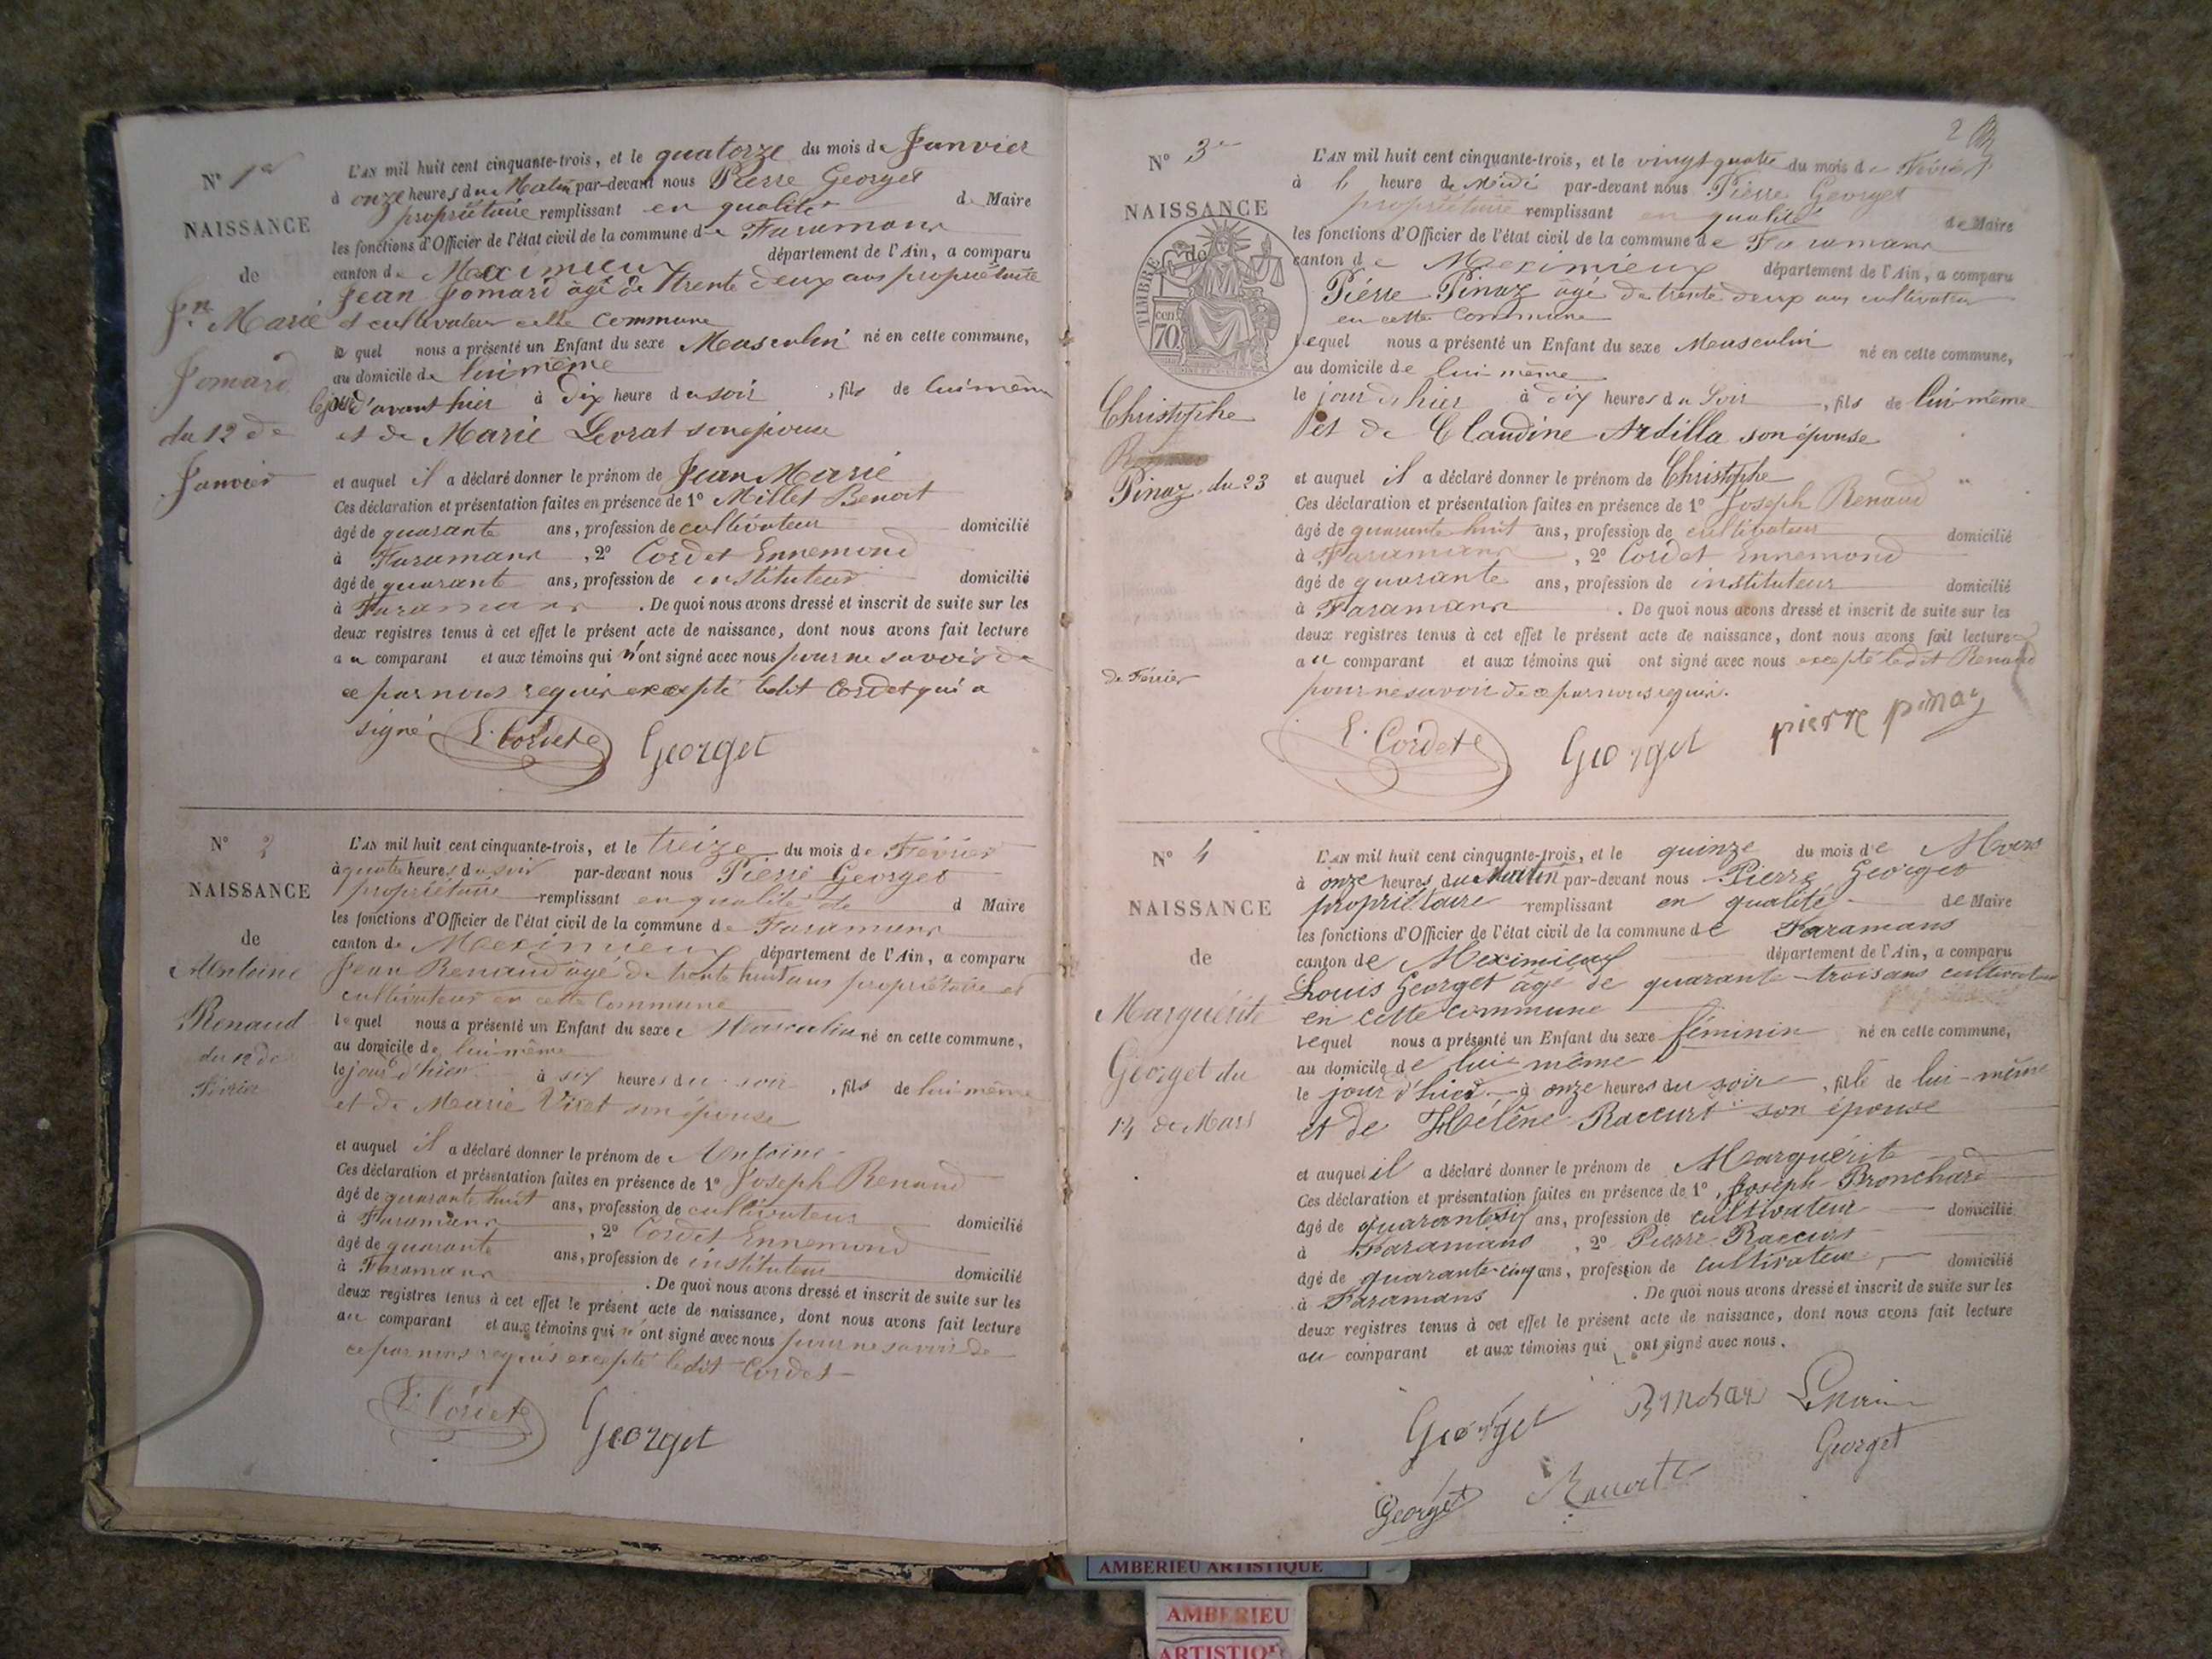 N° 1er
NAISSANCE
de
Jn Marie
Jomard
du 12 de
Janvier
L'AN mil huit cent cinquante-trois, et le quatorze du mois de Janvier
à onze heures du Matin par-devant nous Pierre Georget
propriétaire remplissant en qualité de Maire
les fonctions d'Officier de l'état civil de la commune de Faramans
canton de Meximieux département de l'Ain, a comparu
Jean Jomard âgé de trente deux ans propriétaire
et cultivateur cette Commune
le quel nous a présenté un Enfant du sexe Masculin né en cette commune,
au domicile de lui même
le jour d'avant hier à dix heure du soir , fils de lui même
et de Marie Levrat son épouse
et auquel il a déclaré donner le prénom de Jean Marie
Ces déclaration et présentation faites en présence de 1° Millet Benoit
âgé de quarante ans, profession de cultivateur domicilié
à Faramans , 2° Cordet Ennemond
âgé de quarante ans, profession de instituteur domicilié
à Faramans . De quoi nous avons dressé et inscrit de suite sur les
deux registres tenus à cet effet le présent acte de naissance, dont nous avons fait lecture
au comparant et aux témoins qui n'ont signé avec nous pour ne savoir de
ce par nous requis excepté ledit Cordet qui a
signé E. Cordet Georget
N° 2
NAISSANCE
de
Antoine
Renaud
du 12 de
Février
L'AN mil huit cent cinquante-trois, et le treize du mois de Février
à quatre heures du soir par-devant nous Pierre Georget
propriétaire remplissant en qualité de d Maire
les fonctions d'Officier de l'état civil de la commune de Faramans
canton de Meximieux département de l'Ain, a comparu
Jean Renaud âgé de trente huit ans propriétaire et
cultivateur en cette Commune
lequel nous a présenté un Enfant du sexe Masculin né en cette commune,
au domicile de lui même
le jour d'hier à six heures du soir , fils de lui même
et de Marie Viret son épouse
et auquel il a déclaré donner le prénom de Antoine
Ces déclaration et présentation faites en présence de 1° Joseph Renaud
âgé de quarante huit ans, profession de cultivateur domicilié
à Faramans , 2° Cordet Ennemond
âgé de quarante ans, profession de instituteur domicilié
à Faramans . De quoi nous avons dressé et inscrit de suite sur les
deux registres tenus à cet effet le présent acte de naissance, dont nous avons fait lecture
au comparant et aux témoins qui n'ont signé avec nous pour ne savoir de
ce par nous requis excepté ledit Cordet
E. Cordet Georget
2
N° 3e
NAISSANCE
de
TIMBRE
70 cen.
Christophe
Pinaz du 23
de Février
L'AN mil huit cent cinquante-trois, et le vingt quatre du mois de Février
à heure de Midi par-devant nous Pierre Georget
propriétaire remplissant en qualité de Maire
les fonctions d'Officier de l'état civil de la commune de Faramans
canton de Meximieux département de l'Ain, a comparu
Piérre Pinaz âgé de trente deux ans cultivateur
en cette Commune
lequel nous a présenté un Enfant du sexe Masculin né en cette commune,
au domicile de lui même
le jour d'hier à dix heures du Soir , fils de lui même
et de Claudine Ardilla son épouse
et auquel il a déclaré donner le prénom de Christophe
Ces déclaration et présentation faites en présence de 1° Joseph Renaud
âgé de quarante huit ans, profession de cultivateur domicilié
à Faramans , 2° Cordet Ennemond
âgé de quarante ans, profession de instituteur domicilié
à Faramans . De quoi nous avons dressé et inscrit de suite sur les
deux registres tenus à cet effet le présent acte de naissance, dont nous avons fait lecture
au comparant et aux témoins qui ont signé avec nous excepté ledit Renaud
pour ne savoir de ce par nous requis.
E. Cordet Georget pierre pinaz
N° 4
NAISSANCE
de
Marguérite
Georget du
14 de Mars
L'AN mil huit cent cinquante-trois, et le quinze du mois de Mars
à onze heures du Matin par-devant nous Pierre Georget
propriétaire remplissant en qualité de Maire
les fonctions d'Officier de l'état civil de la commune de Faramans
canton de Meximieux département de l'Ain, a comparu
Louis Georget âgé de quarante-trois ans cultivateur
en cette commune
lequel nous a présenté un Enfant du sexe féminin né en cette commune,
au domicile de lui même
le jour d'hier à onze heures du soir , fille de lui-même
et de Hélène Raccurt son épouse
et auquel il a déclaré donner le prénom de Marguérite
Ces déclaration et présentation faites en présence de 1° Joseph Bronchard
âgé de quarante six ans, profession de cultivateur domicilié
à Faramans , 2° Pierre Raccurt
âgé de quarante-cinq ans, profession de cultivateur domicilié
à Faramans . De quoi nous avons dressé et inscrit de suite sur les
deux registres tenus à cet effet le présent acte de naissance, dont nous avons fait lecture
au comparant et aux témoins qui ont signé avec nous.
Georget
Georget
Georget
AMBERIEU ARTISTIQUE
AMBERIEU
ARTISTIQ